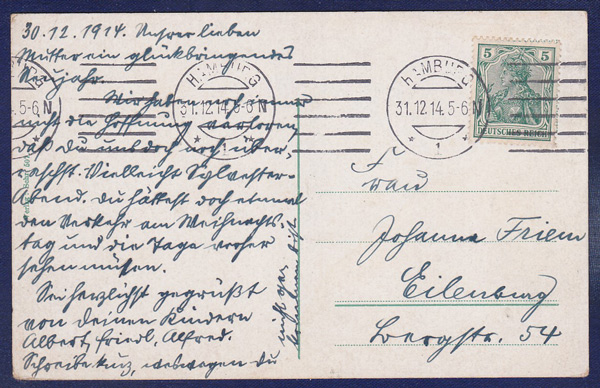 30.12.1914. Unsrer lieben
Mutter ein glückbringendes
Neujahr.
Wir haben noch immer
nicht die Hoffnung verloren,
daß du uns doch noch über-
raschst. Vielleicht Sylvester-
Abend. du hättest doch etwas
den Verkehr am Weihnachts-
tag und die Tage vorher
sehen müssen.
Sei herzlichst gegrüßt
von deinen Kindern
Albert, Friedl, Alfred.
Schreibe kurz, weswegen du
nicht
gekommen bist
HAMBURG
31.12.14.5-6N
* 1 *
HAMBURG
31.12.14.5-6N
* 1 *
.5-6N
5 5
DEUTSCHES REICH
Frau
Johanna Friem
Eilenburg
Bergstr. 54